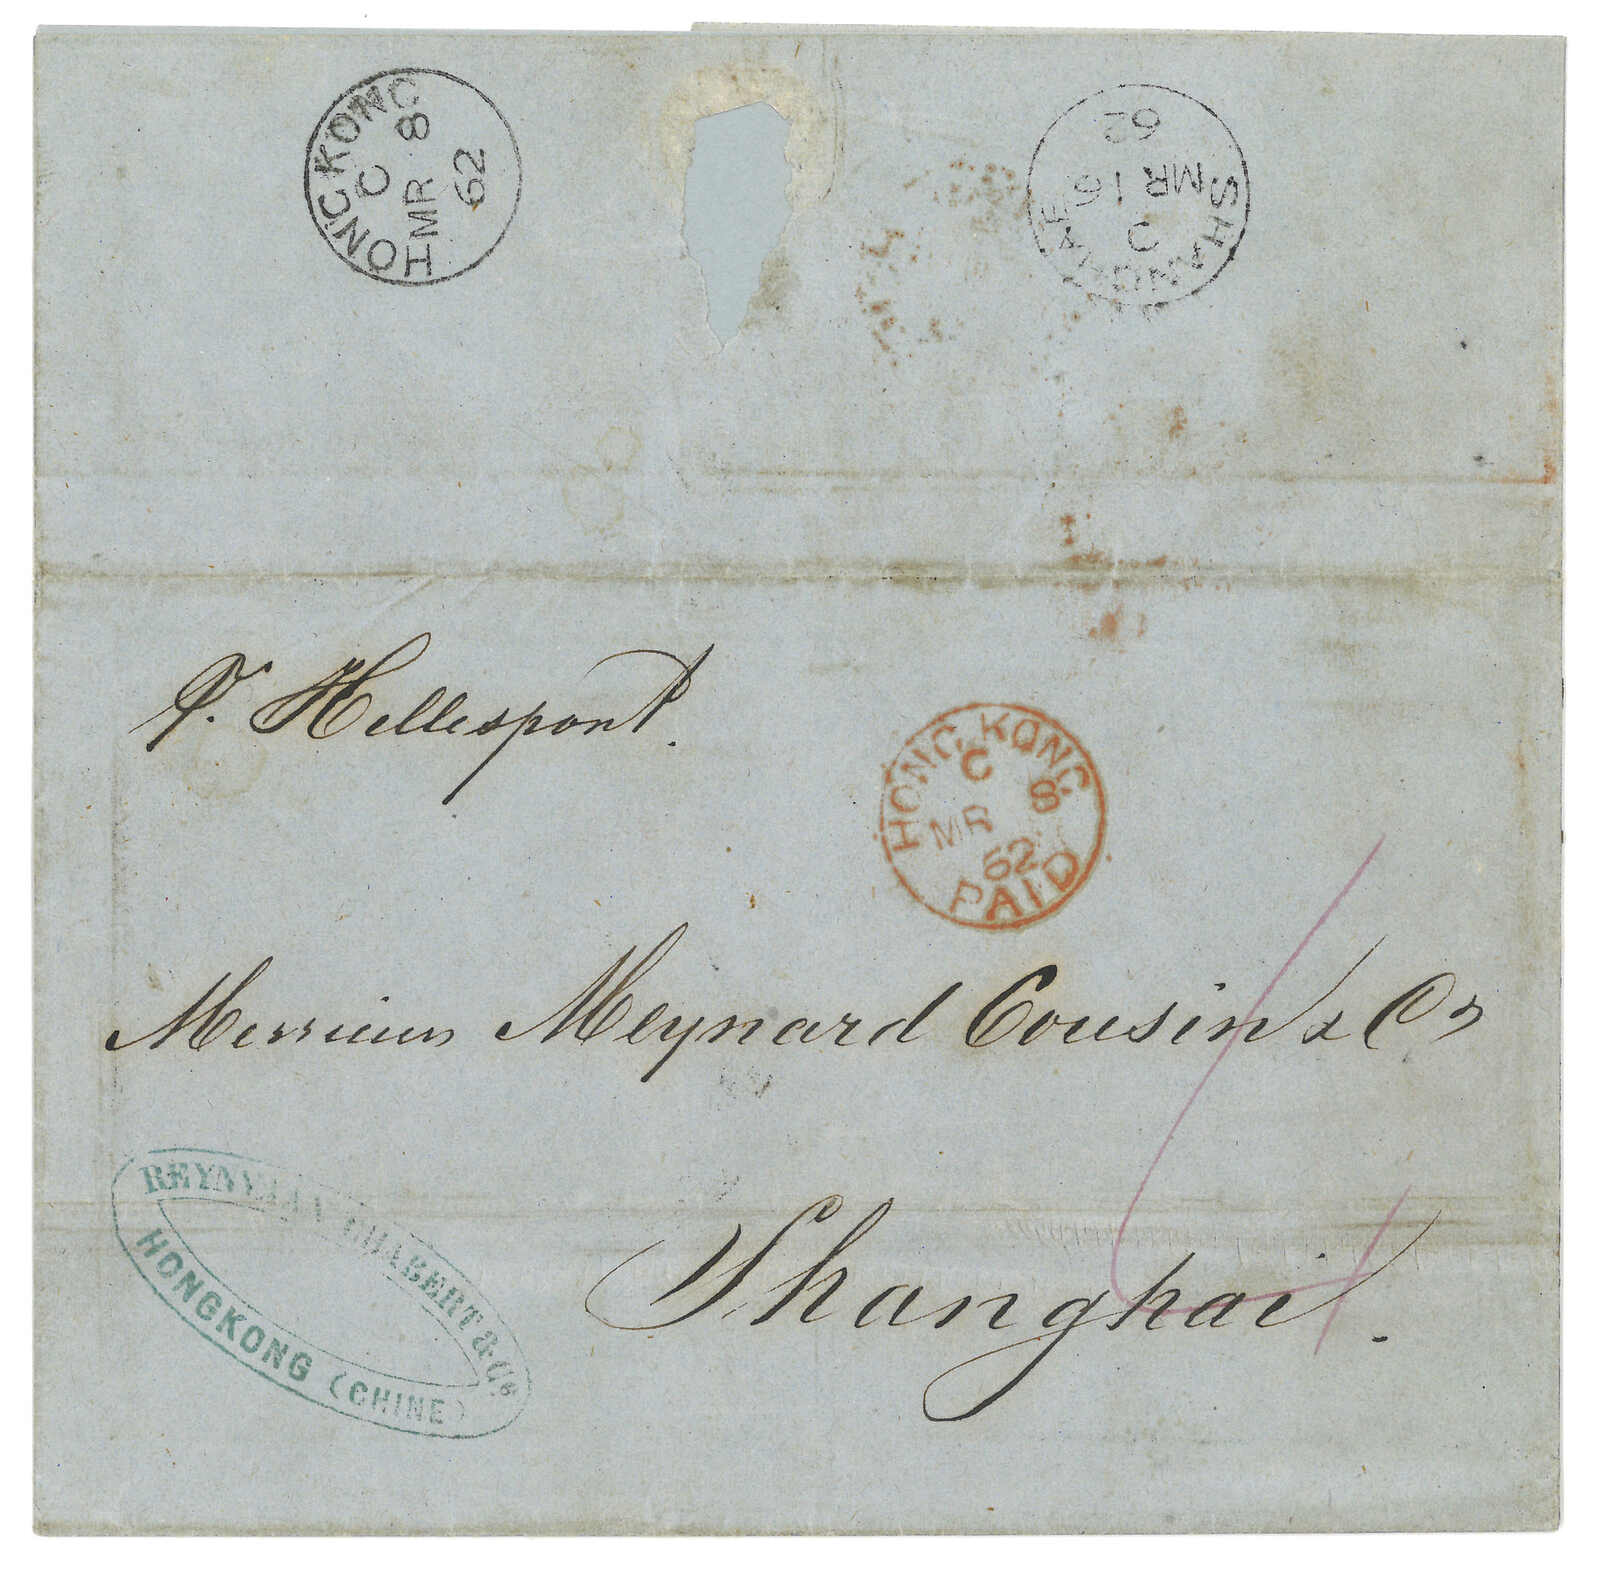 HONG KONG
C
MR 8
62
SHANGHAE
C
MR 16
62
P. Hellespont.
HONG KONG
C
MR 8
62
PAID
Messieurs Meynard Cousin & Co
Shanghai.
CHABERT & Co.
HONGKONG (CHINE)